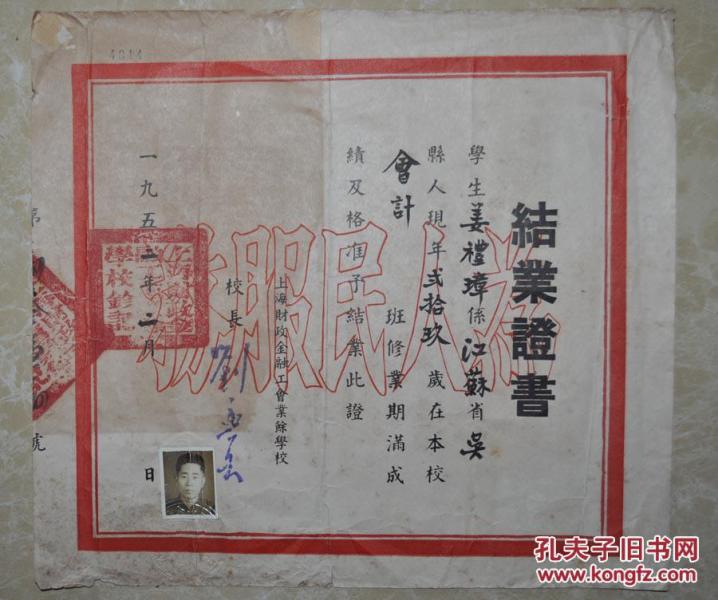 結業證書
學生姜禮璋係江蘇省吳
縣人現年貳拾玖歲在本校
會計班修業期滿成
績及格准予結業此證
上海財政金融工會業餘學校
校長
一九五二年二月 日
第 號
為人民服務
4014
孔夫子旧书网
www.kongfz.com